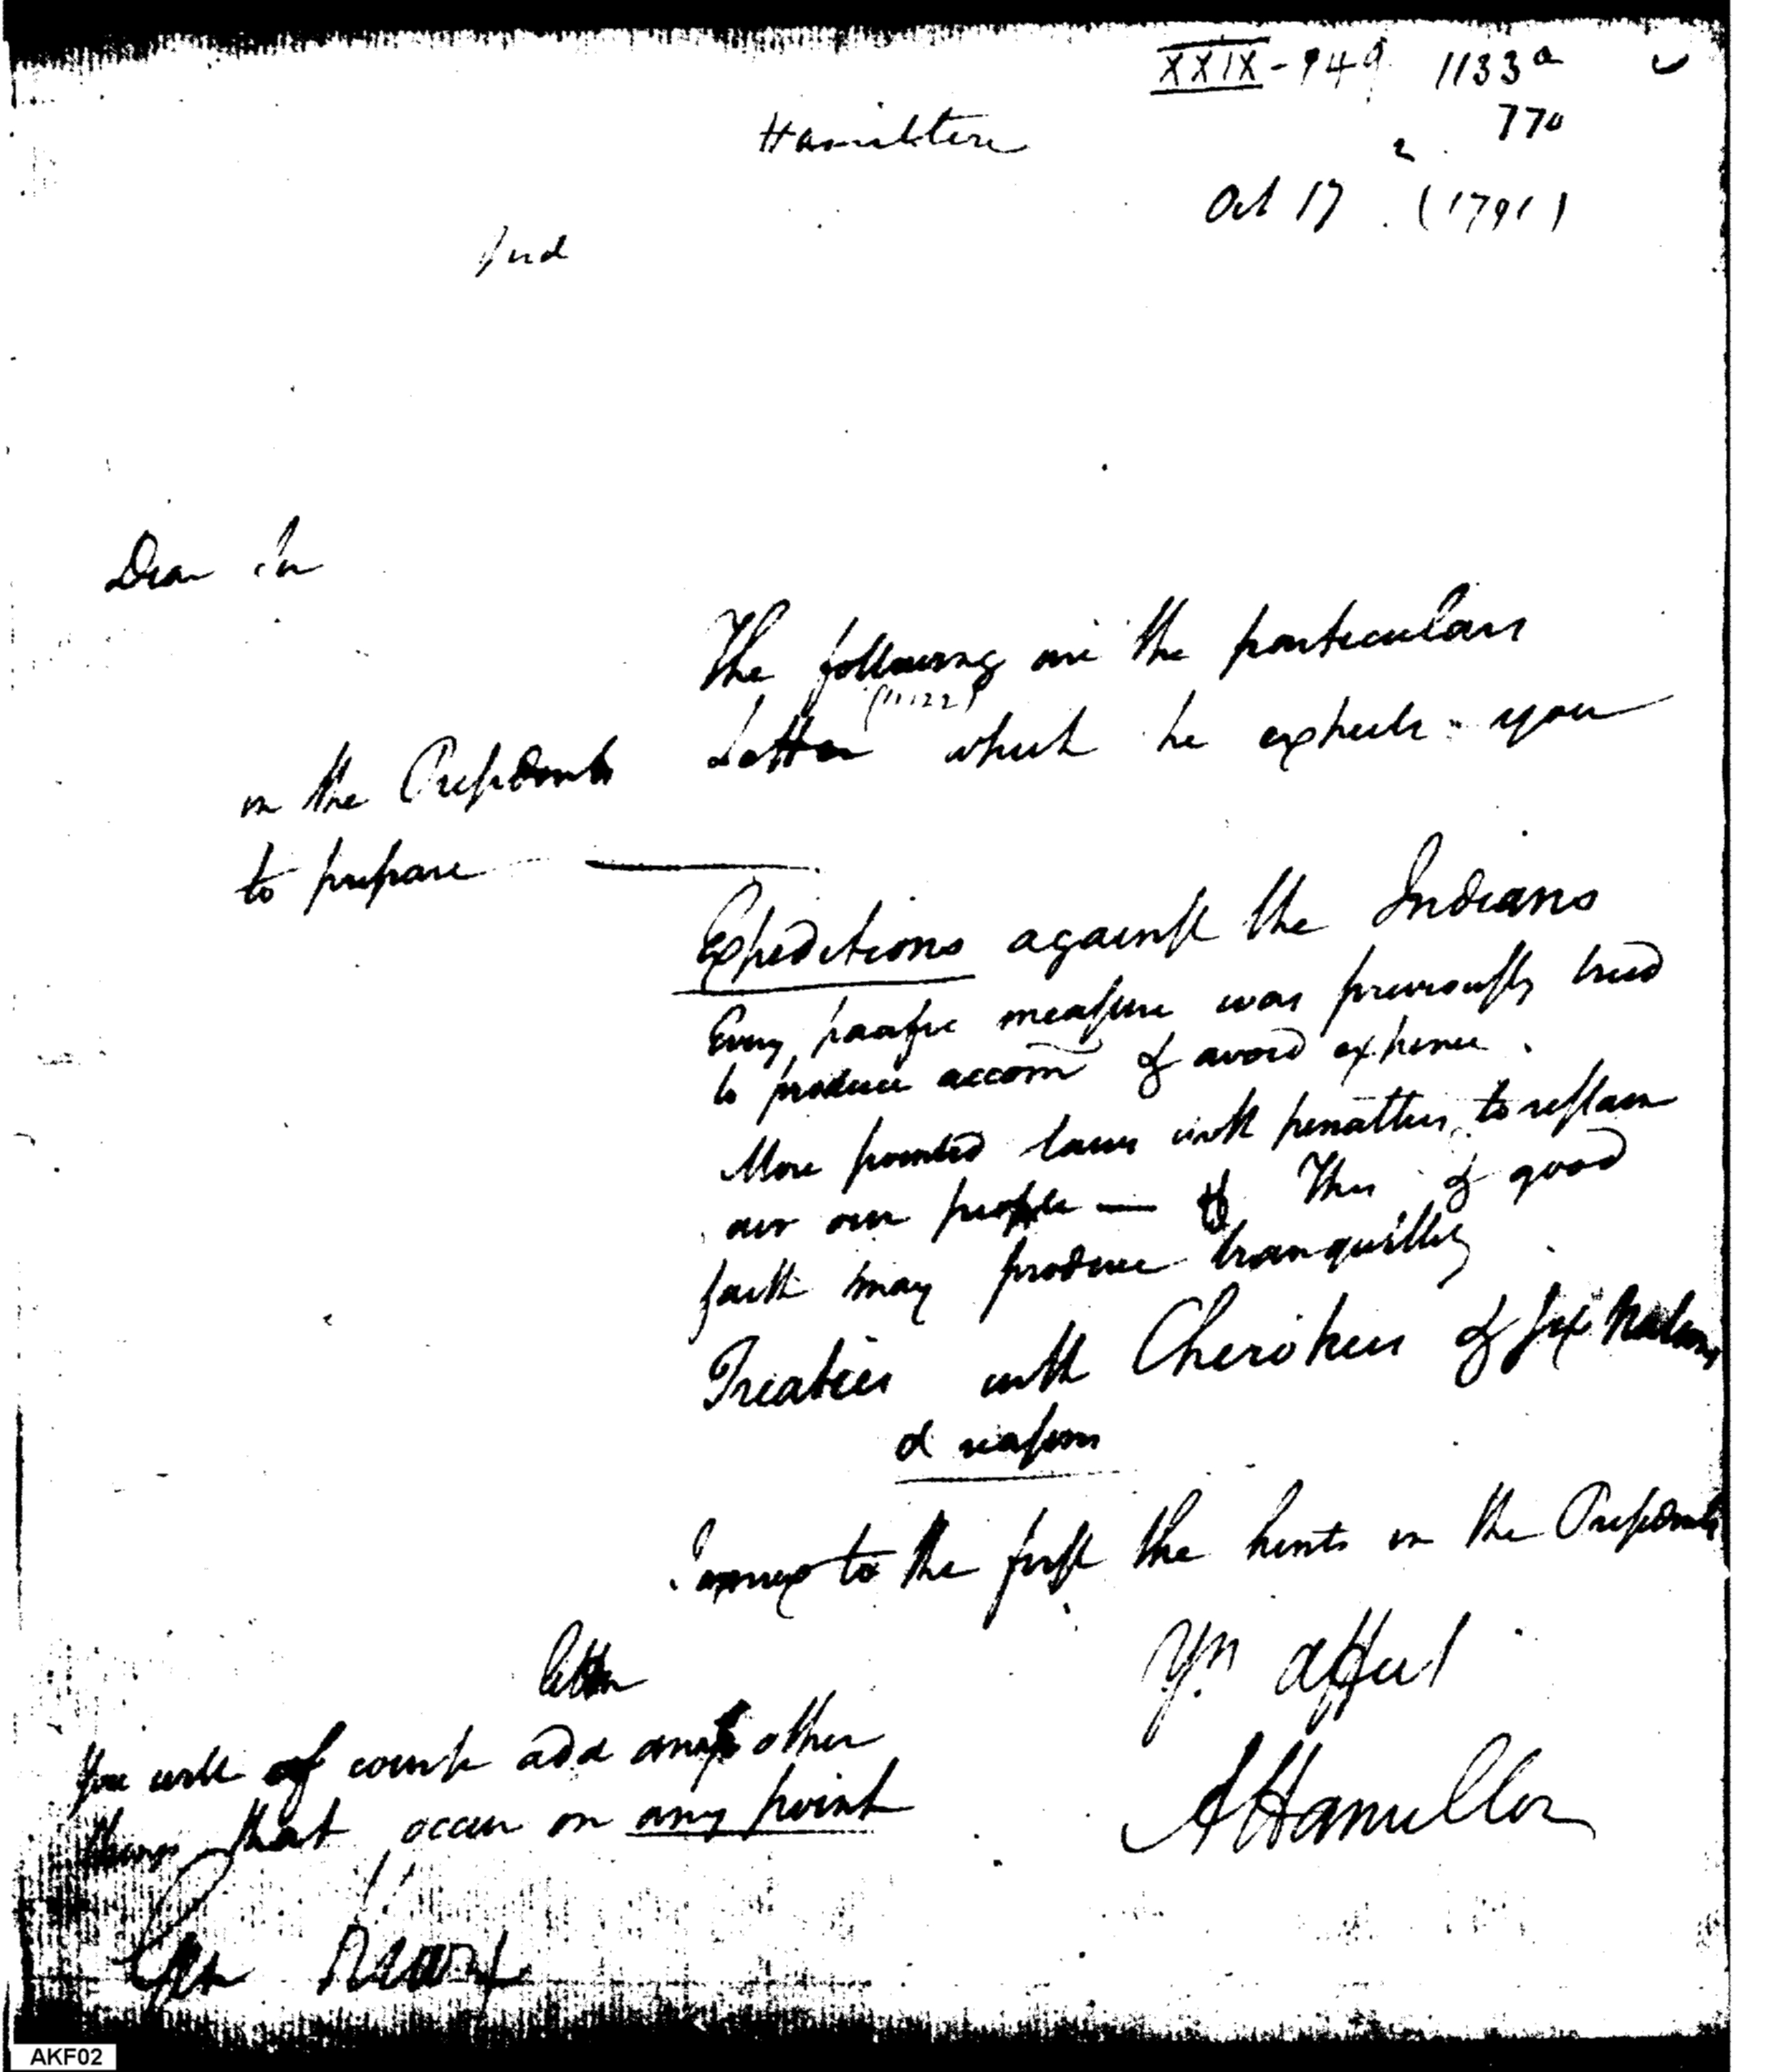 XXIX-949 1133a
770
2
Hamilton
Oct 17 (1791)
Ind
Dear Sir
The following are the particulars
(1122)
in the Presidents Letter which he expects you
to prepare
Expeditions against the Indians
Every pacific measure was previously tried
to produce accom & avoid expence.
More pointed laws with penalties to restrain
our own people — This & good
faith may produce tranquillity
Treaties with Cherokees & six Nations
& reasons
I annex to the first the hints in the Presidents
letter
Yrs Affect
AHamilton
You will of course add any other
things that occur on any point
Gen Knox
AKF02